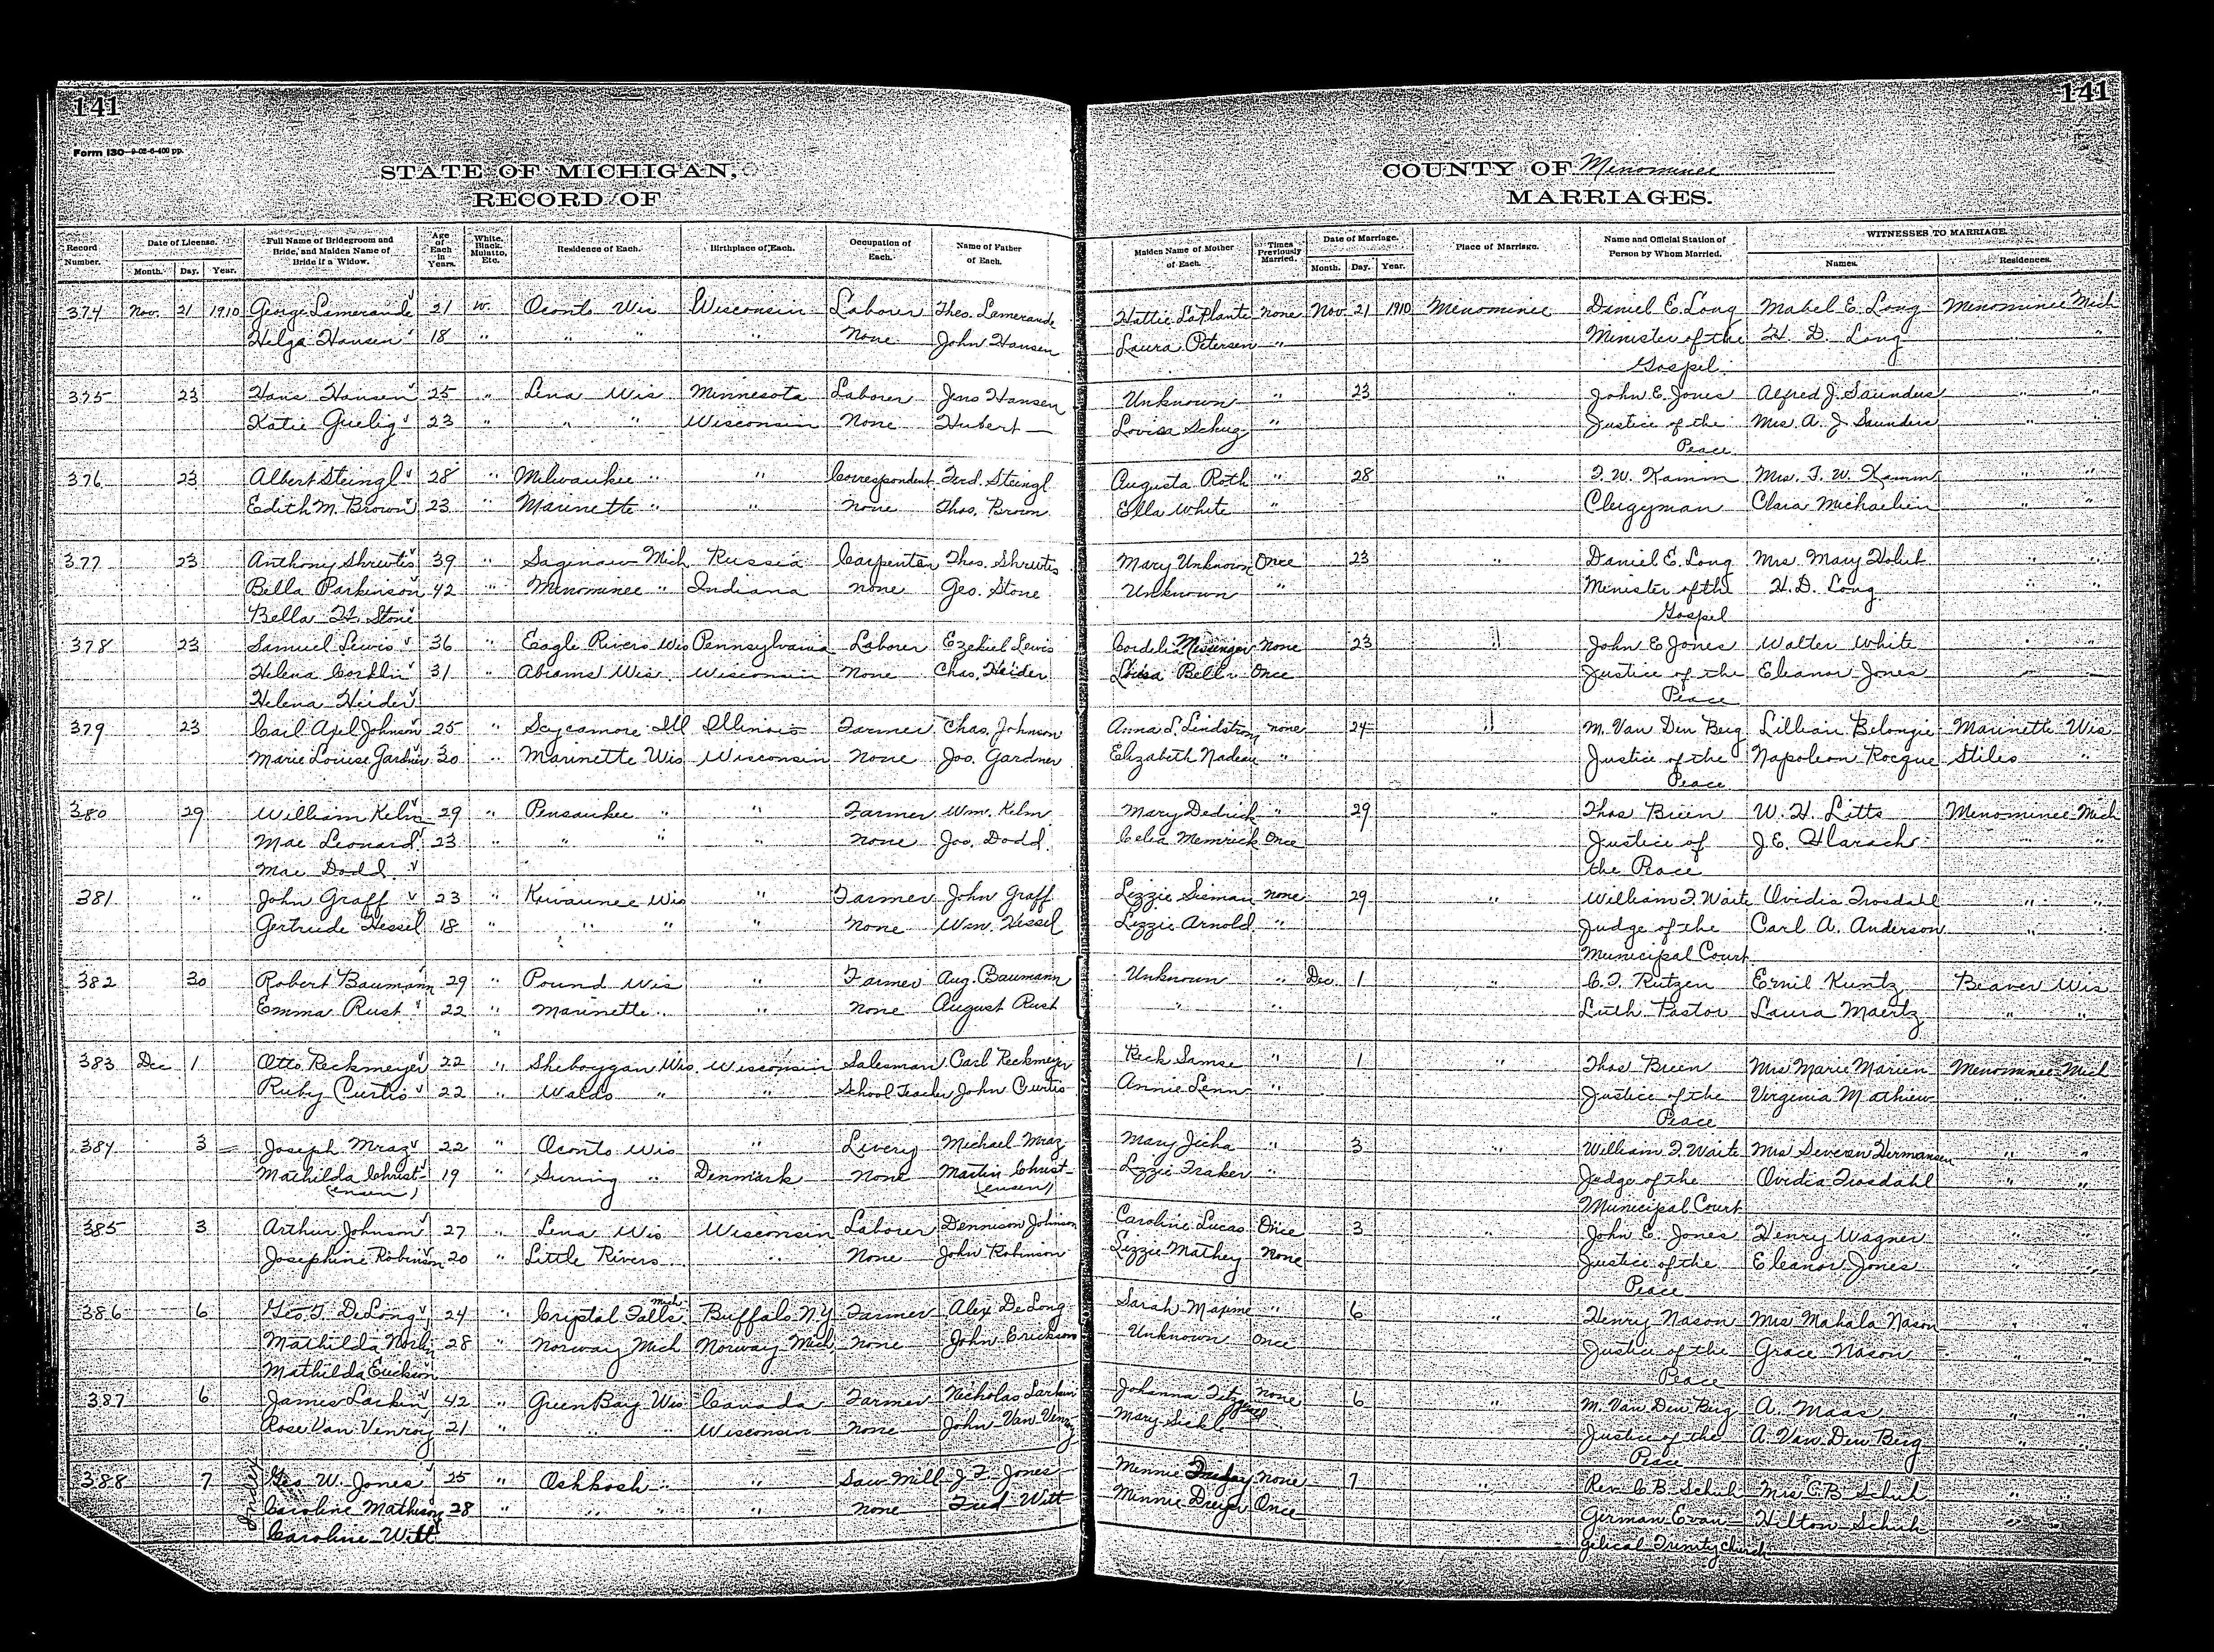 141
141
Form 130-9-02-6-400 pp.
STATE OF MICHIGAN,
RECORD OF
COUNTY OF Menominee
MARRIAGES.
Record Number. Date of License. Month. Day. Year. Full Name of Bridegroom and Bride, and Maiden Name of Bride if a Widow. Age of Each in Years. White, Black, Mulatto, Etc. Residence of Each. Birthplace of Each. Occupation of Each. Name of Father of Each. Maiden Name of Mother of Each. Times Previously Married. Date of Marriage. Month. Day. Year. Place of Marriage. Name and Official Station of Person by Whom Married. WITNESSES TO MARRIAGE. Names. Residences.
374 Nov. 21 1910 George Lamerande 21 W. Oconto Wis Wisconsin Laborer Theo. Lamerande Hattie LaPlante none Nov 21 1910 Menominee Daniel E. Long Mabel E. Long Menominee Mich
Helga Hansen 18 " " " " None John Hansen Laura Petersen " Minister of the H. D. Long " "
Gospel.
375 23 Hans Hansen 25 " Lena Wis Minnesota Laborer Jens Hansen Unknown " 23 " John E. Jones Alfred J. Saunders " "
Katie Guelig 23 " " " Wisconsin None Hubert — Lovisa Schug " Justice of the Mrs. A. J. Saunders " "
Peace
376 23 Albert Steingl 28 " Milwaukee " " Correspondent Ferd. Steingl Augusta Roth " 28 " F. W. Kamm Mrs. F. W. Kamm " "
Edith M. Brown 23 " Marinette " " None Thos. Brown Ella White " Clergyman Clara Michaelien " "
377 23 Anthony Shrewtis 39 " Saginaw Mich Russia Carpenter Thos. Shrewtis Mary Unknown Once 23 " Daniel E. Long Mrs Mary Holub " "
Bella Parkinson 42 " Menominee " Indiana none Geo. Stone Unknown " Minister of the H. D. Long " "
Bella H. Stone Gospel
378 23 Samuel Lewis 36 " Eagle Rivers Wis Pennsylvania Laborer Ezekiel Lewis Cordelia Messenger none 23 " John E Jones Walter White " "
Helena Corklin 31 " Abrams Wis. Wisconsin None Chas. Heider Louisa Bell Once Justice of the Eleanor Jones " "
Helena Heider Peace
379 23 Carl Axel Johnson 25 " Sycamore Ill Illinois Farmer Chas. Johnson Anna L. Lindstrom none 24 " M. Van Den Berg Lillian Belongie Marinette Wis
Marie Louise Gardner 30 " Marinette Wis Wisconsin None Jos. Gardner Elizabeth Nadeau " Justice of the Napoleon Rocque Stiles "
Peace
380 29 William Kelm 29 " Pensaukee " " Farmer Wm. Kelm Mary Dedrick " 29 " Thos Breen W. H. Litts Menominee Mich
Mae Leonard 23 " " " " none Jos. Dodd Celia Memrick Once Justice of J. E. Harach " "
Mae Dodd the Peace
381 " John Graff 23 " Kewaunee Wis " Farmer John Graff Lizzie Sisman none 29 " William F. Waite Ovidia Trosdahl " "
Gertrude Hessel 18 " " " " none Wm. Hessel Lizzie Arnold " Judge of the Carl A. Anderson " "
Municipal Court
382 30 Robert Baumann 29 " Pound Wis " Farmer Aug. Baumann Unknown " Dec 1 " C. F. Rutzen Emil Kuntz Beaver Wis
Emma Rust 22 " Marinette " " None August Rust " " Luth. Pastor Laura Maertz " "
383 Dec 1 Otto Reckmeyer 22 " Sheboygan Wis Wisconsin Salesman Carl Reckmeyer Reck Samse " 1 " Thos Breen Mrs Marie Marien Menominee Mich
Ruby Curtis 22 " Waldo " " School Teacher John Curtis Annie Lenn " Justice of the Virginia Mathieu " "
Peace
384 3 Joseph Mraz 22 " Oconto Wis " Livery Michael Mraz Mary Jicha " 3 " William F. Waite Mrs Severin Hermansen " "
Mathilda Christ- 19 " Suring " Denmark None Martin Christ- Lizzie Fraker " Judge of the Ovidia Trosdahl " "
ensen ensen Municipal Court
385 3 Arthur Johnson 27 " Lena Wis Wisconsin Laborer Dennison Johnson Caroline Lucas Once 3 " John E. Jones Henry Wagner " "
Josephine Robinson 20 " Little Rivers " None John Robinson Lizzie Mathey None Justice of the Eleanor Jones " "
Peace
386 6 Geo. F. DeLong 24 " Crystal Falls Mich Buffalo N.Y Farmer Alex DeLong Sarah Maxime " 6 " Henry Nason Mrs Mahala Nason " "
Mathilda Norby 28 " Norway Mich Norway Mich none John Erickson Unknown Once Justice of the Grace Nason " "
Mathilda Erickson Peace
387 6 James Larkin 42 " Green Bay Wis Canada Farmer Nicholas Larkin Johanna Fitzgerald none 6 " M. Van Den Berg A. Maas " "
Rose Van Venroy 21 " " " Wisconsin none John Van Venroy Mary Sickle Justice of the A. Van Den Berg " "
Peace
388 7 Geo W. Jones 25 " Oshkosh " " Saw Mill J F Jones Minnie none 7 " Rev C. B. Schuh Mrs C B Schuh " "
Caroline Mathison 28 " " " " none Fred Witt Minnie Dreyer Once German Evan- Hilton Schuh " "
Caroline Witt gelical Trinity Church